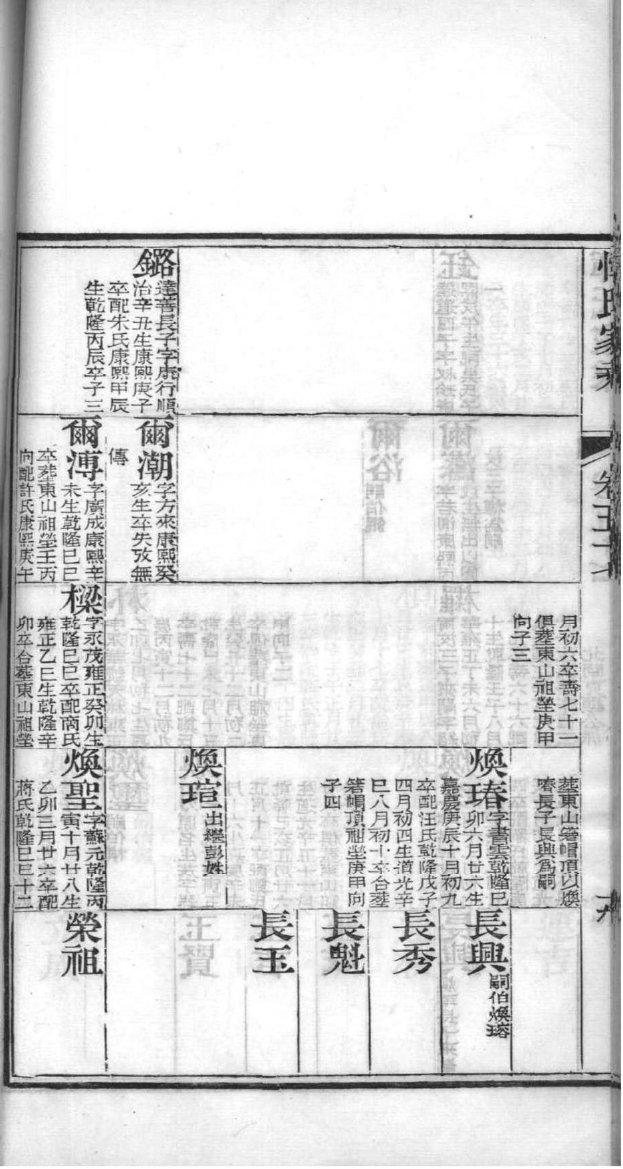 惲氏家乘
卷五十七
鏴
達善長子字虞行順
治辛丑生康熙庚子
卒配朱氏康熙甲辰
生乾隆丙辰卒子三
爾潮
字方來康熙癸
亥生卒失攷無
傳
爾溥
字廣成康熙辛
未生乾隆己巳
卒葬東山祖塋壬丙
向配許氏康熙庚午
月初六卒壽七十一
俱葬東山祖塋庚甲
向子三
樑
字永茂雍正癸卯生
乾隆己巳卒配商氏
雍正乙巳生乾隆辛
卯卒合葬東山祖塋
葬東山箬帽頂以煥
㻌長子長興爲嗣
煥㻌
字書雲乾隆巳
卯六月廿六生
嘉慶庚辰十月初九
卒配汪氏乾隆戊子
四月初四生道光辛
巳八月初十卒合葬
箬帽頂祖塋庚甲向
子四
煥瑄
出繼彭姓
煥聖
字蘇元乾隆丙
寅十月廿八生
乙卯三月廿六卒配
蔣氏乾隆己巳十二
長興
嗣伯煥瑢
長秀
長魁
長玉
榮祖